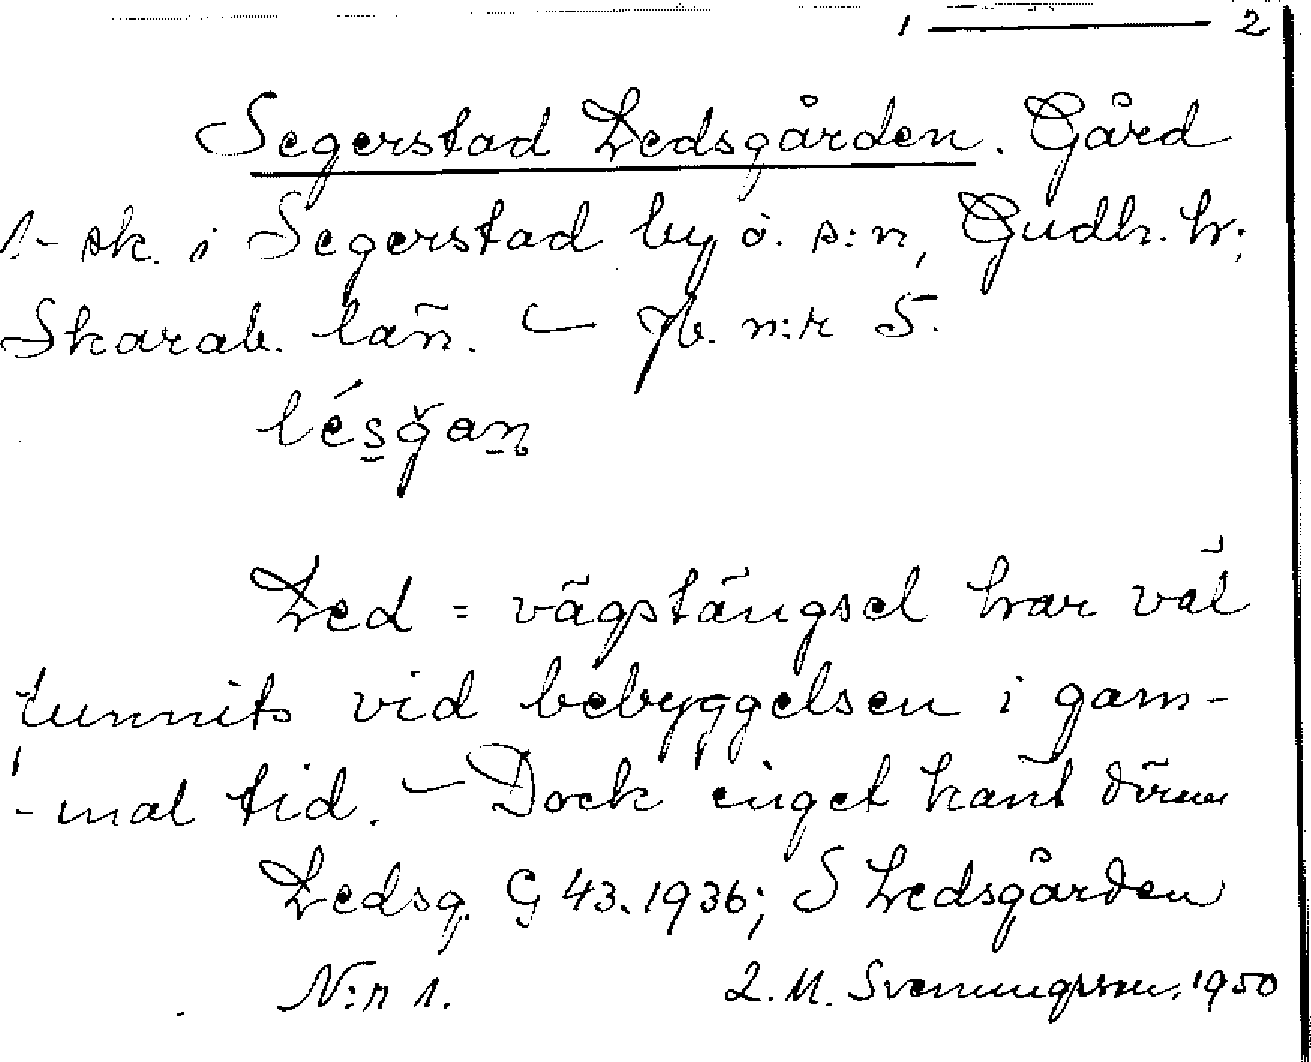 1 ——— 2
Segerstad Ledsgården. Gård
1- sk. i Segerstad by o. s:n, Gudh. hr;
Skarab. län. — Jb. n:r 5.
lésğan
Led = vägstängsel har väl
funnits vid bebyggelsen i gam-
-mal tid. — Dock inget känt därom
Ledsg. G 43.1936; S Ledsgården
N:r 1.
2. M. Svenungsson. 1950